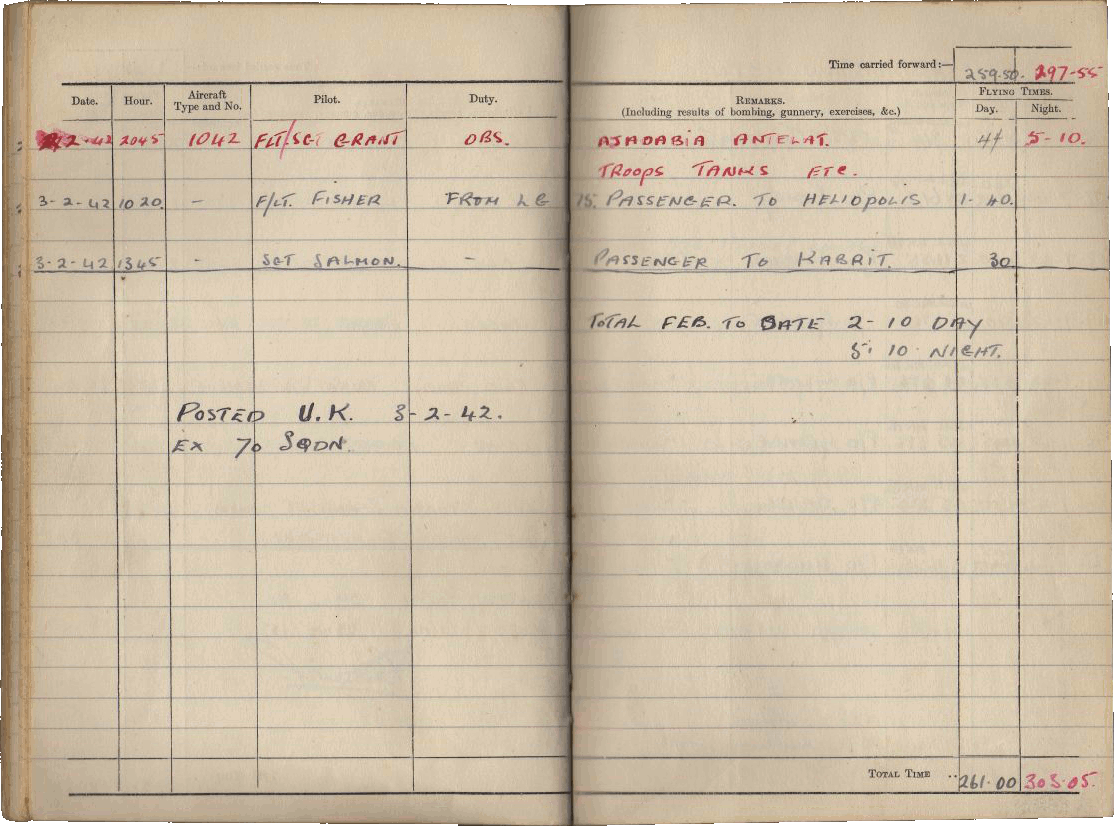 Time carried forward:— 259.50. 297-55
Date. Hour. Aircraft Type and No. Pilot. Duty. REMARKS. (Including results of bombing, gunnery, exercises, &c.) FLYING TIMES. Day. Night.
2-42 2045 1042 FLT/SGT GRANT OBS. AJADABIA ANTELAT. 5-10.
TROOPS TANKS ETC.
3-2-42 1020. - F/LT. FISHER FROM LG 75. PASSENGER. TO HELIOPOLIS 1-40.
3-2-42 1345 - SGT SALMON. - PASSENGER TO KABRIT. 30
TOTAL FEB. TO DATE 2-10 DAY
5.10 NIGHT.
POSTED U.K. 3-2-42.
EX 70 SQDN.
TOTAL TIME .. 261.00 303.05.